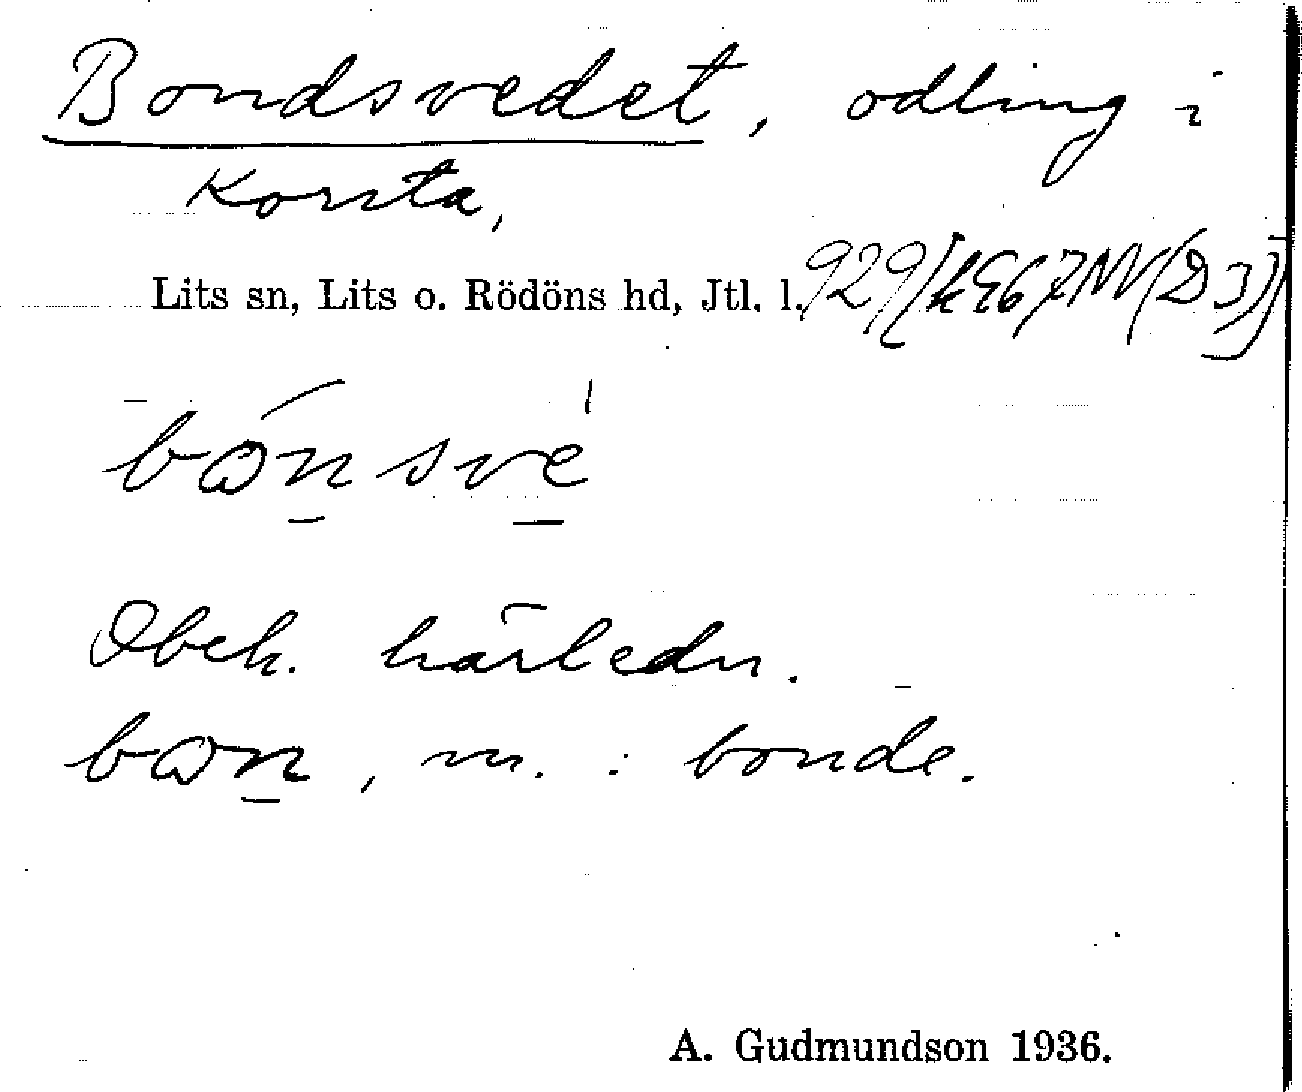 Bondsvedet, odling i
Korsta,
Lits sn, Lits o. Rödöns hd, Jtl. l.
bo̱nsve̱
Obek. härledn.
boṉ, m. : bonde.
A. Gudmundson 1936.